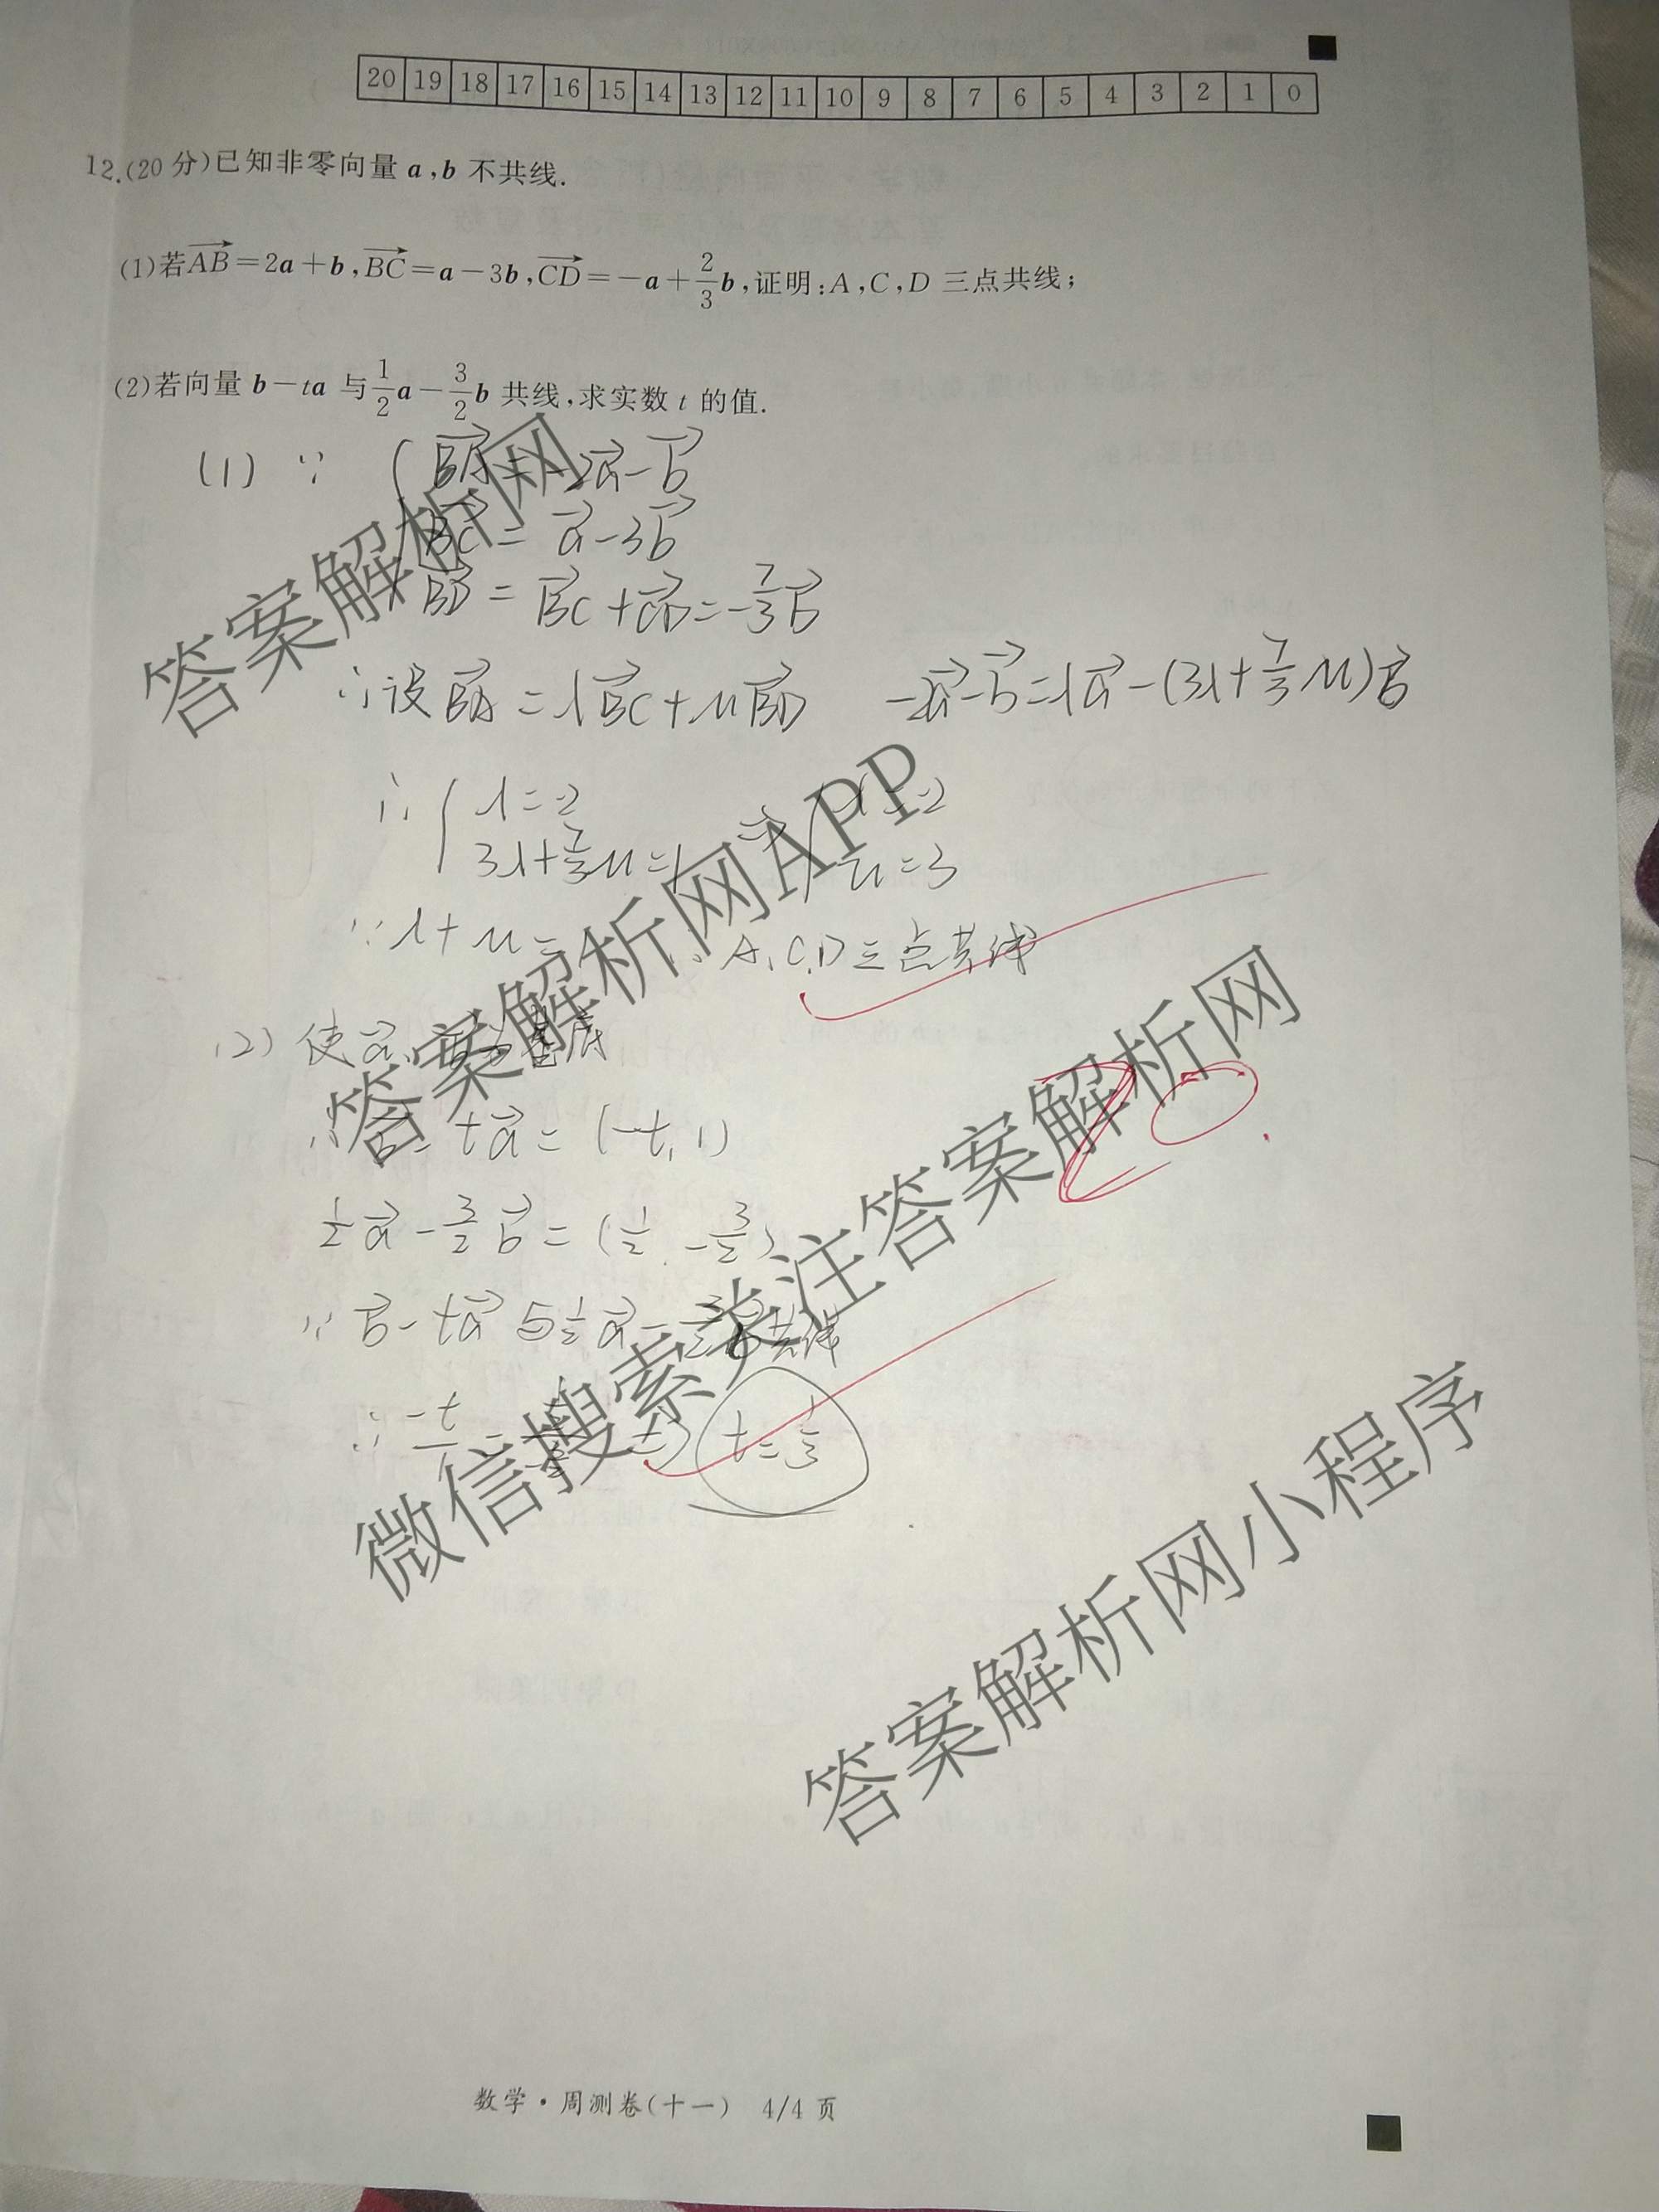 20 19 18 17 16 15 14 13 12 11 10 9 8 7 6 5 4 3 2 1 0
12.(20分)已知非零向量 a,b 不共线.
(1)若\overrightarrow{AB}=2a+b,\overrightarrow{BC}=a-3b,\overrightarrow{CD}=-a+\frac{2}{3}b,证明:A,C,D 三点共线;
(2)若向量 b-ta 与\frac{1}{2}a-\frac{3}{2}b 共线,求实数 t 的值.
(1) ∵ { \overrightarrow{BA}=-2\vec{a}-\vec{b}
\overrightarrow{BC}=\vec{a}-3\vec{b}
\overrightarrow{BD}=\overrightarrow{BC}+\overrightarrow{CD}=-\frac{7}{3}\vec{b}
∴设\overrightarrow{BA}=λ\overrightarrow{BC}+μ\overrightarrow{BD} -2\vec{a}-\vec{b}=λ\vec{a}-(3λ+\frac{7}{3}μ)\vec{b}
∴ { λ=-2
3λ+\frac{7}{3}μ=1 μ=3
∵λ+μ= A,C,D三点共线
(2) 使\vec{a}、 基底
∴ t\vec{a}=(-t,1)
\frac{1}{2}\vec{a}-\frac{3}{2}\vec{b}=(\frac{1}{2},-\frac{3}{2})
∵\vec{b}-t\vec{a}与\frac{1}{2}\vec{a}- 共线
∴ -t t=\frac{1}{3}
20
答案解析网
答案解析网APP
微信搜索关注答案解析网
答案解析网小程序
数学·周测卷(十一) 4/4页